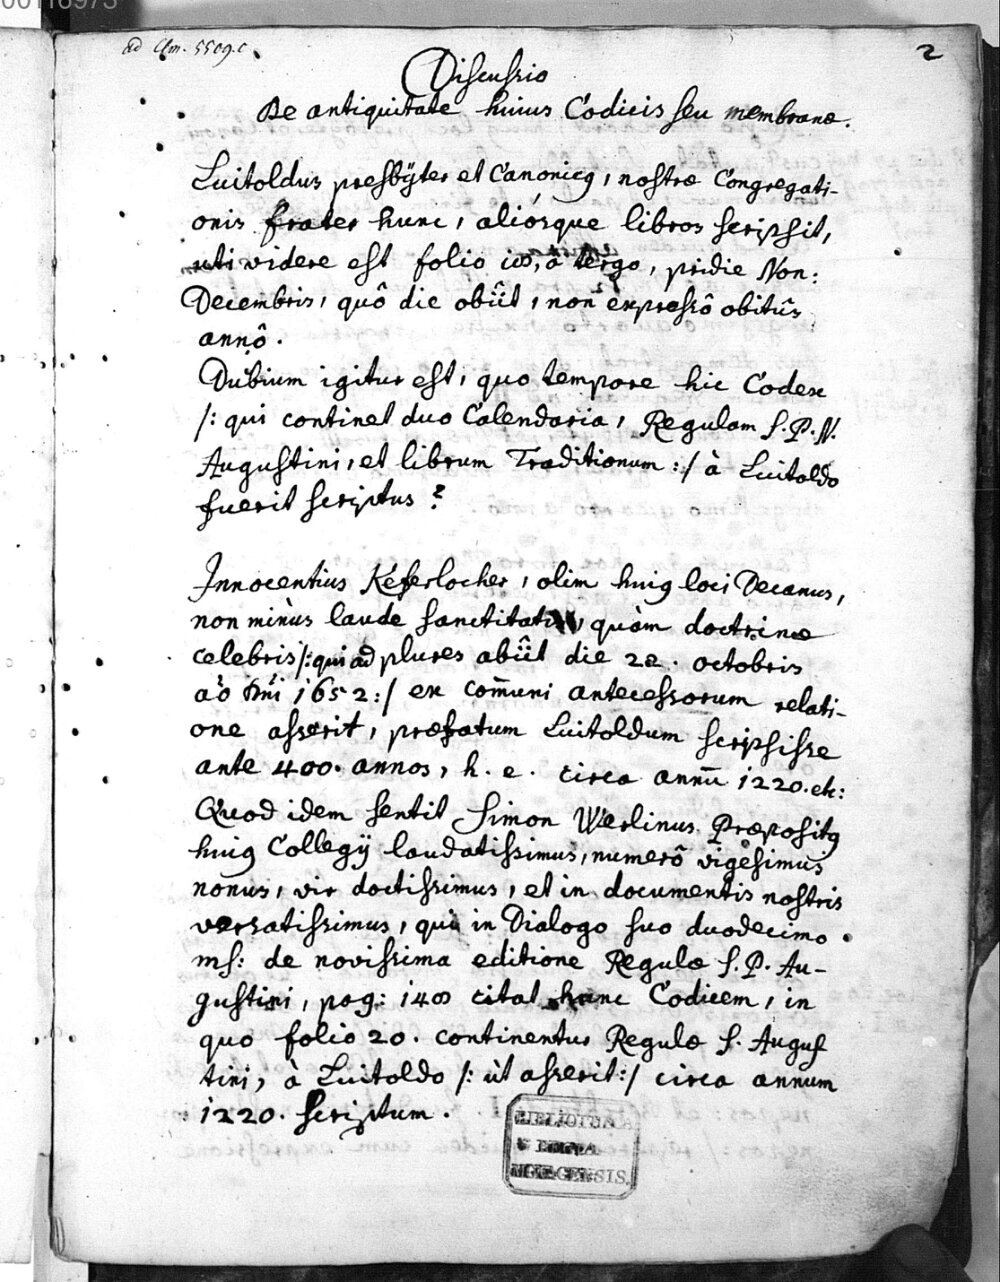 00116973
ad Clm. 5509.c.
2
Discussio
De antiquitate huius Codicis seu membranæ.
Luitoldus presbÿter et Canonicq, nostræ Congregati-
onis frater hunc, aliósque libros scripsit,
uti videre est folio à tergo, pridie Non:
Decembris, quô die obiît, non expressô obitûs
annô.
Dubium igitur est, quo tempore hic Codex
/: qui continet duo Calendaria, Regulam S.P.N.
Augustini, et librum Traditionum :/ à Luitoldo
fuerit scriptus?
Innocentius Keferlocher, olim huiq loci Decanus,
non minùs laude sanctitatis, quàm doctrinæ
celebris /: qui ad plures abiît die 22. octobris
aõ Dni 1652 :/ ex com̄uni antecessorum relati-
one asserit, præfatum Luitoldum scripsisse
ante 400. annos, h. e. circa annū 1220. etc:
Quod idem sentit Simon Werlinus Præpositq
huiq Collegÿ laudatissimus, numerô vigèsimus
nonus, vir doctissimus, et in documentis nostris
versatissimus, qui in Dialogo suo duodecimo
ms: de novissima editione Regulæ S. P. Au-
gustini, pag: 1400 citat hunc Codicem, in
quo folio 20. continentur Regulæ S. Augus
tini, à Luitoldo /: ùt asserit :/ circa annum
1220. scriptum.
BIBLIOTHECA
REGIA
MONACENSIS.